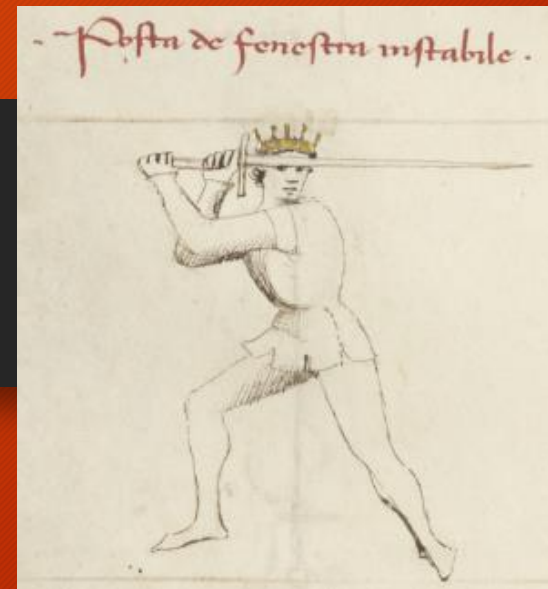 · Posta de fenestra instabile ·